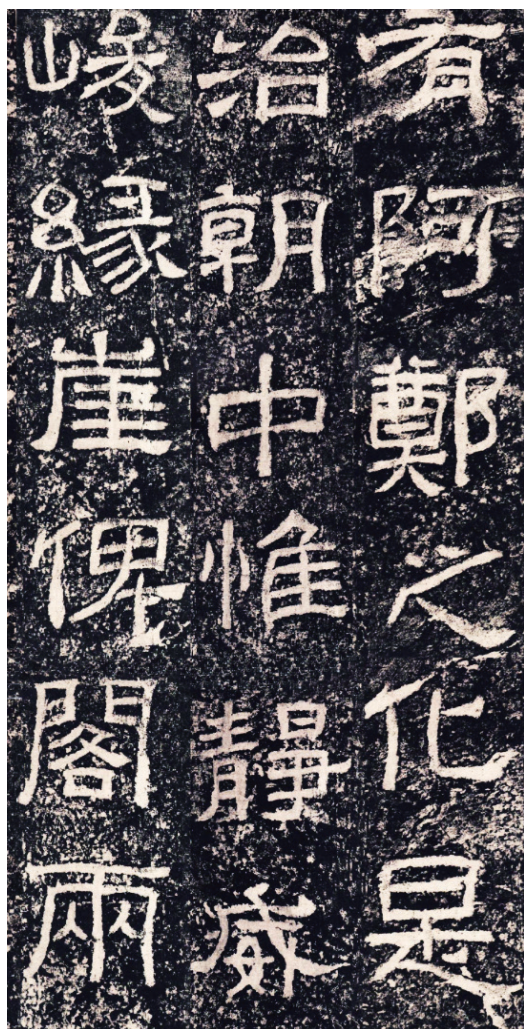 有阿鄭之化是
治朝中惟靜威
峻緣崖俾閣兩